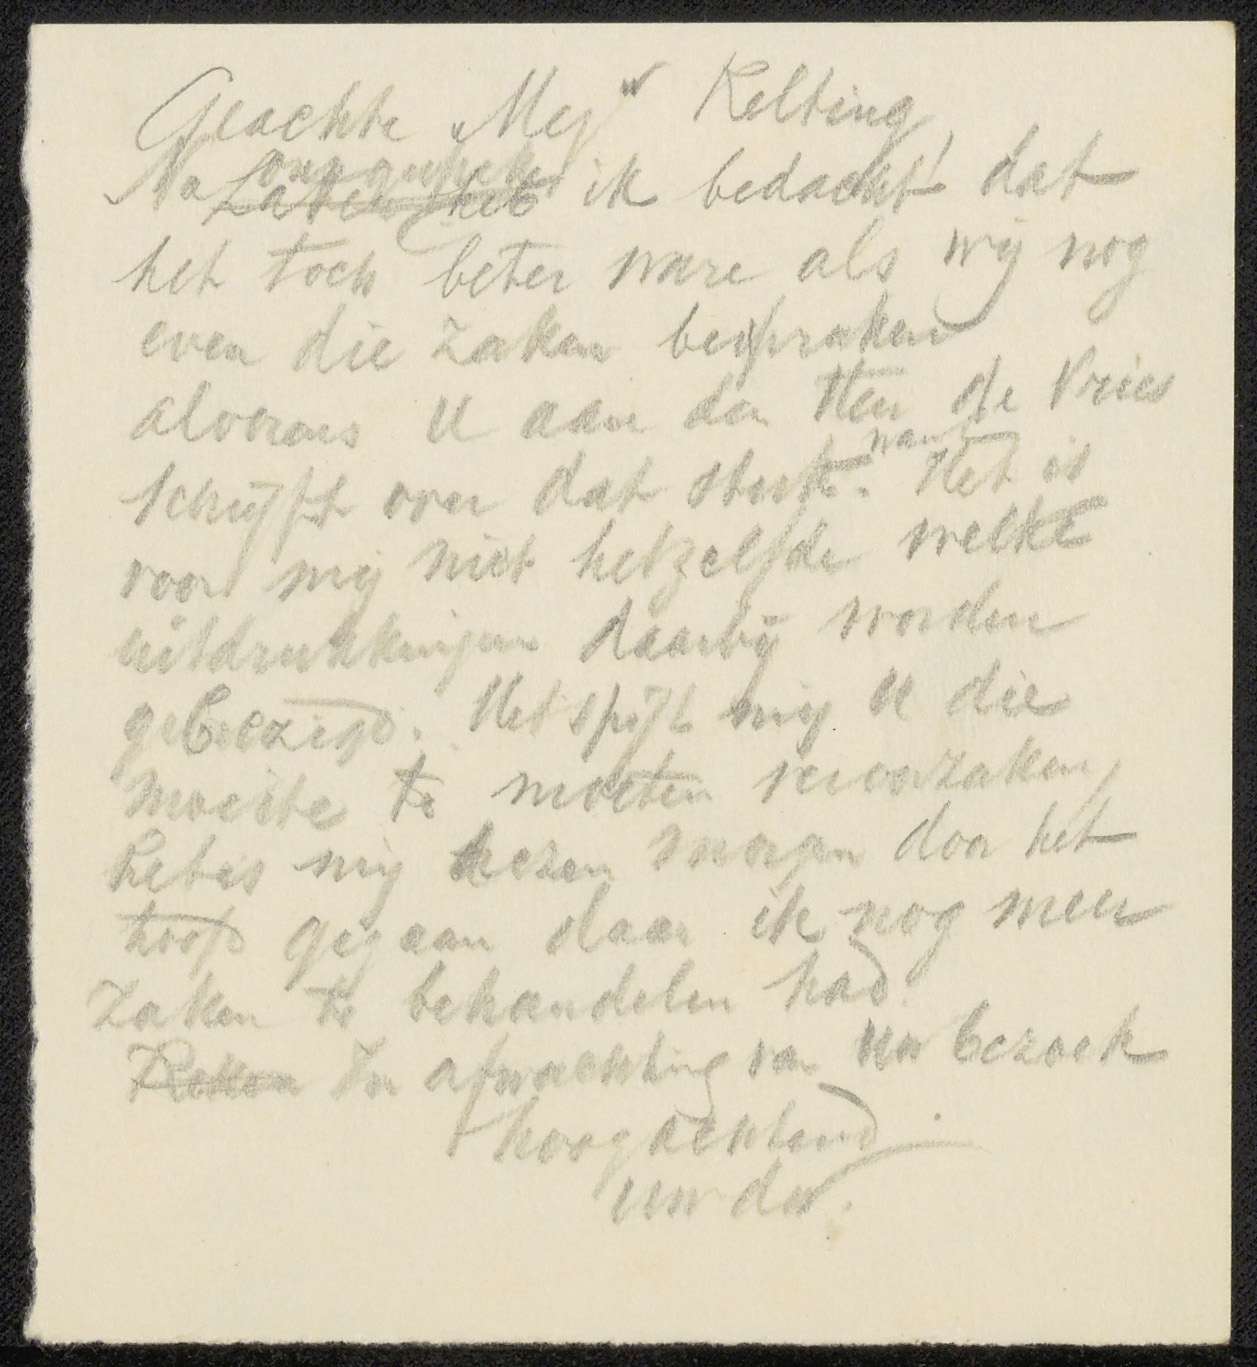 Geachte Mejr Kelting,
Na ons gesprek ik bedacht dat
het toch beter ware als wij nog
even die zaken bespraken
alvorens U aan den Heer de Vries
schrijft over dat stuk. want Het is
voor mij niet hetzelfde welke
uitdrukkingen daarbij worden
gebeezigd. Het spijt mij U die
moeite te moeten veroorzaken,
het is mij dezen morgen door het
hoofd gegaan daar ik nog meer
zaken te behandelen had.
In afwachting van Uw bezoek
hoogachtend.
uw dw.